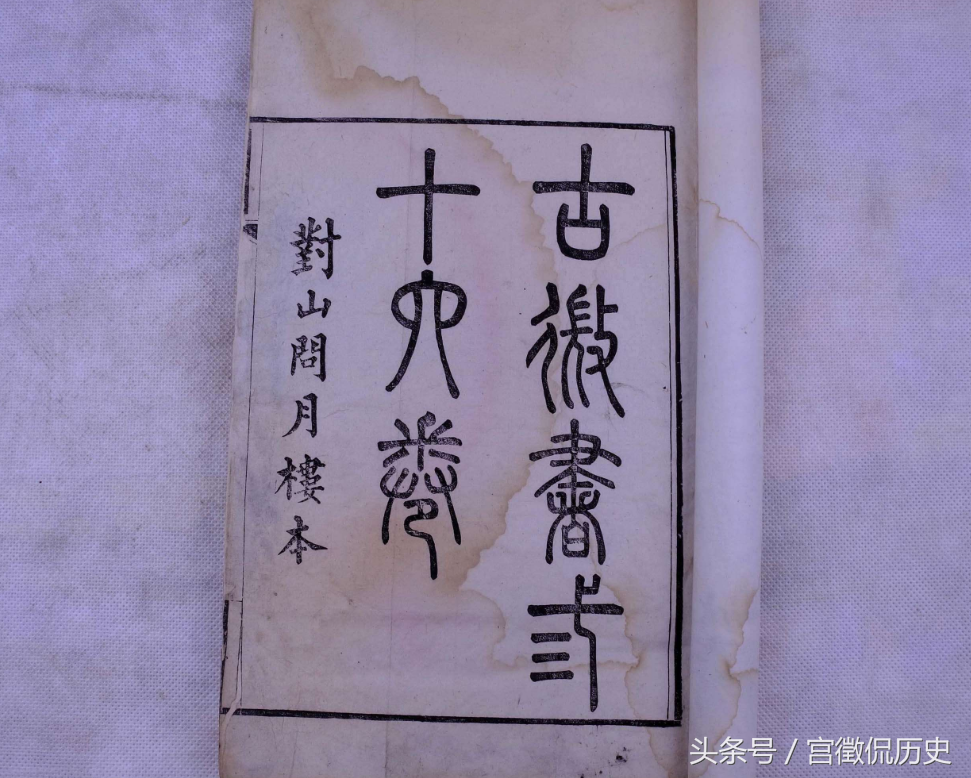 古微書弎
十六卷
對山問月樓本
头条号 / 宫徵侃历史